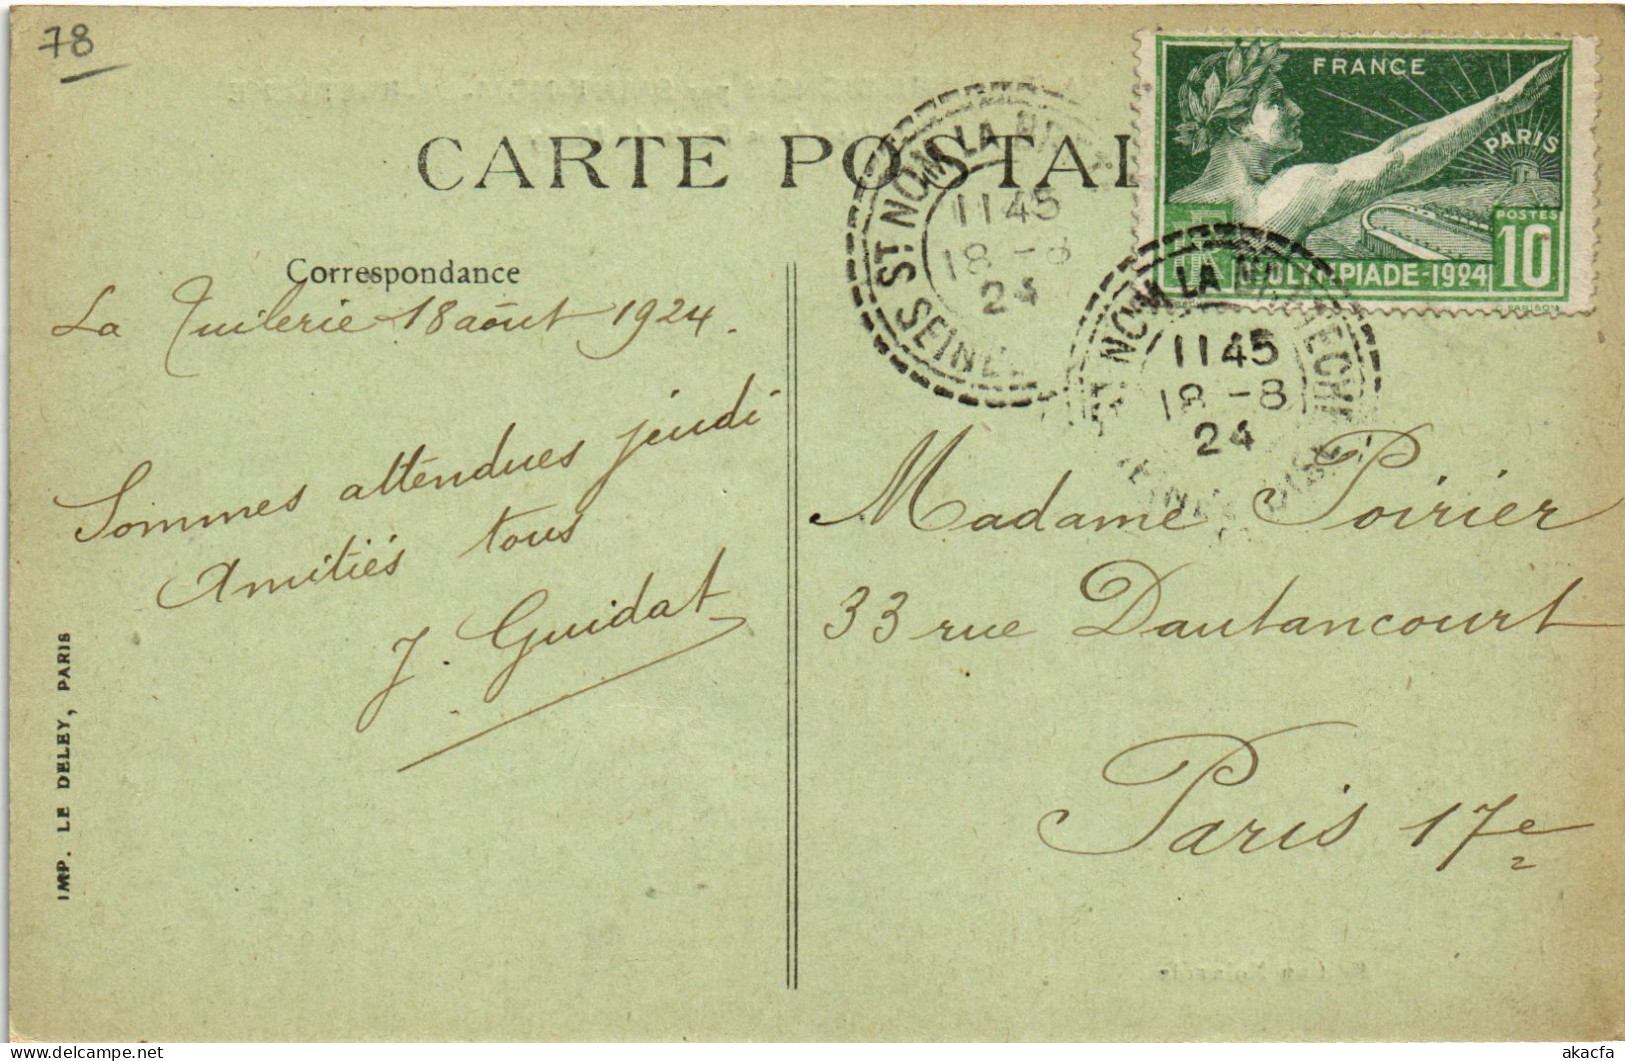 78
CARTE POSTAL
Correspondance
La Tuilerie 18 août 1924.
Sommes attendues jeudi
Amitiés tous
J. Guidat
IMP. LE DELEY, PARIS
FRANCE
PARIS
POSTES
10
OLYMPIADE-1924
ST. NOM LA
SEINE
1145
18 -8
24
NOM LA BRETECHE
1145
18 -8
24
Madame Poirier
33 rue Dautancourt
Paris 17e
akacfa